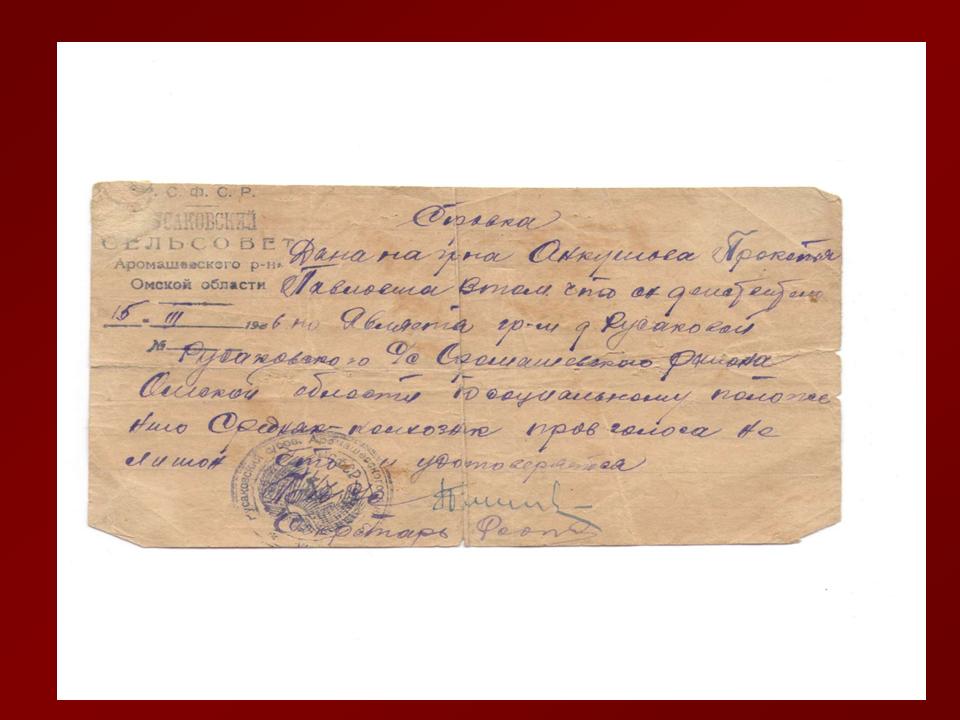 . С. Ф. С. Р.
УСАКОВСКИЙ
СЕЛЬСОВЕТ
Аромашевского р-на
Омской области
15 - III 1936
№
Справка
Дана на гр-на Анкушева
Павловича в том что он действител
но является гр-м д Русаковой
Русаковского с/с Аромашевского района
Омской области По социальному положе
нию Середняк-колхозник прав голоса не
лишон что и удостоверяется
Секретарь
Русаковский